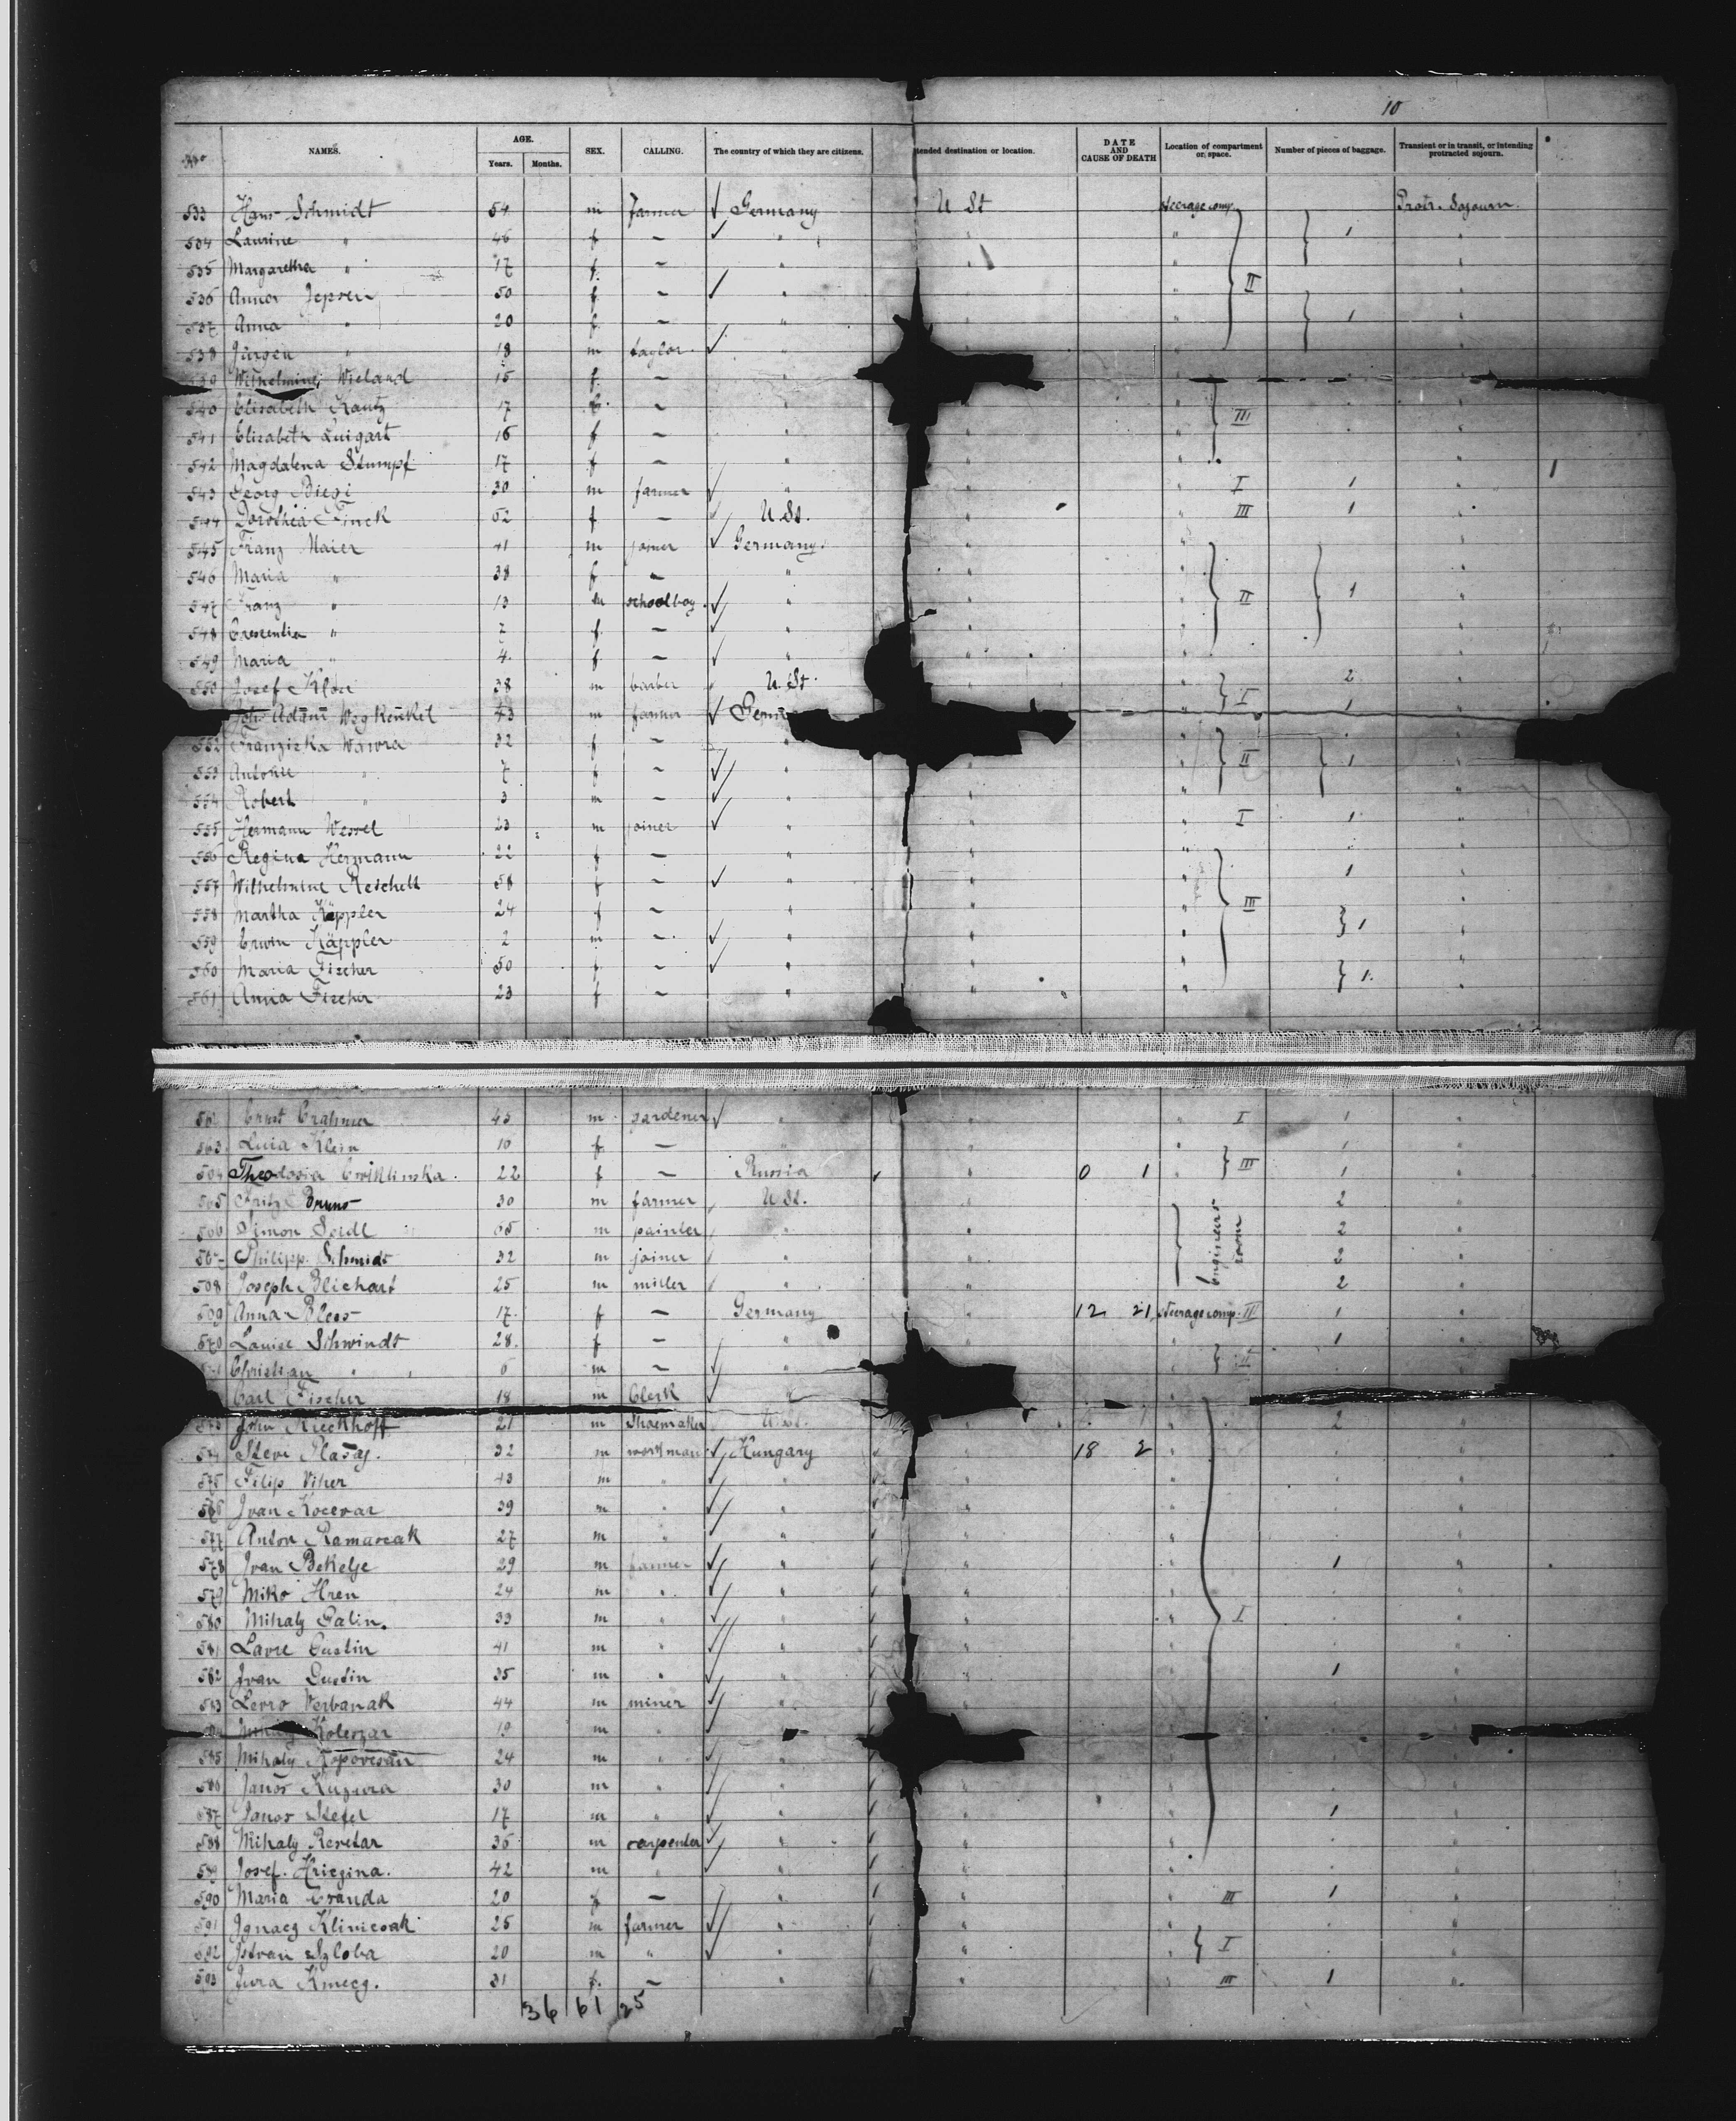 10
No NAMES. AGE. Years. Months. SEX. CALLING. The country of which they are citizens. tended destination or location. DATE AND CAUSE OF DEATH Location of compartment or space. Number of pieces of baggage. Transient or in transit, or intending protracted sojourn.
533 Hans Schmidt 54 m farmer ✓ Germany U St steerage comp. Protr. Sojourn.
534 Laurine " 46 f — ✓ " " " 1 "
535 Margaretha " 17 f. — " " " "
536 Anna Jepsen 50 f. — ✓ " " " II "
537 Anna " 20 f. — " " " 1 "
538 Jürgen " 18 m taylor ✓ " " "
Wilhelmine Wieland 15 f. —
540 Elisabeth Kautz 17 f. — " " III "
541 Elizabeth Luigart 16 f — " " "
542 Magdalena Stumpf 17 f — " " " "
543 Georg Biegi 30 m farmer ✓ " " " I 1 "
544 Dorothea Finck 52 f — U St. " " III 1 "
545 Franz Maier 41 m joiner ✓ Germany. " " "
546 Maria " 38 f — " " " "
547 Franz " 13 m schoolboy. ✓ " " " II 1 "
548 Crescentia " 7 f. — ✓ " " "
549 Maria " 4. f. — ✓ " " " "
550 Josef Klou 38 m barber U. St. " " 2 "
Joh. Adam Wegkenkel 43 m farmer ✓ Germ " I 1 "
552 Franziska Wawra 32 f — " " "
553 Antonie " 7 f — ✓ " " " II 1 "
554 Robert " 3 m — ✓ " " " "
555 Hermann Wessel 23 m joiner ✓ " " " I 1 "
556 Regina Hermann 22 f — " " " "
557 Wilhelmine Reschelt 58 f — ✓ " " " 1 "
558 Martha Käppler 24 f — " " " III "
559 Erwin Käppler 2 m — ✓ " " " 1 "
560 Maria Fischer 50 f — ✓ " " " "
561 Anna Fischer 23 f — " " " 1. "
562 Ernst Crahmer 43 m gardener ✓ " " " I 1 "
563 Luia Klein 10 f — " " " 1 "
564 Theodosia 22 f — Russia " 0 1 " III 1 "
565 Fritz Bruns 30 m farmer U St. " 2 "
566 Simon Seidl 65 m painter " " engineers room 2 "
567 Philipp Schmidt 32 m joiner " " 2 "
568 Joseph Blichart 25 m miller " " 2 "
569 Anna Bless 17. f — Germany " 12 21 steerage comp. III 1 "
570 Louise Schwindt 28. f — " " " 1 "
Christian " 6 m — ✓ " " II
Carl Fischer 18 m Clerk ✓ " "
573 John Rieckhoff 21 m Shoemaker U. St. 2 "
574 Steve 32 m workman ✓ Hungary " 18 2 "
575 Filip Viher 43 m " ✓ " " " "
576 Ivan Kocevar 39 m " ✓ " " " "
577 Anton Ramarcak 27 m " ✓ " " " "
578 Ivan Bekelje 29 m farmer ✓ " " " 1 "
579 Miko Hren 24 m " ✓ " " " "
580 Mihaly Galin. 33 m " ✓ " " " I "
581 Lavre Custin 41 m " ✓ " " " "
582 Ivan Gustin 35 m " ✓ " " " 1 "
583 Levro Verbanak 44 m miner ✓ " " " "
Mihaly Koleszar 19 m " ✓ " "
585 Mihaly 24 m " ✓ " " " "
586 Janos Kuzura 30 m " ✓ " " " "
587 Janos Stefel 17 m " ✓ " " " 1 "
588 Mihaly Resetar 36 m carpenter ✓ " " " "
589 Josef Hriczina. 42 m " ✓ " " " "
590 Maria Cranda 20 f — " " " III 1 "
591 Ignacz Klimcsak 25 m farmer ✓ " " " "
592 Istvan Szloba 20 m " ✓ " " " I "
593 Jura Kmecz. 31 f. — " " " III 1 "
36 61 25